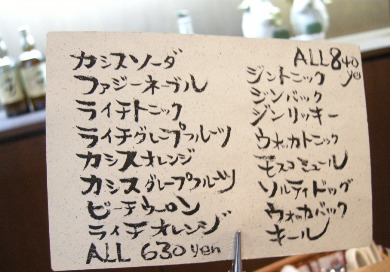 カシスソーダ
ファジーネーブル
ライチトニック
ライチグレープフルーツ
カシスオレンジ
カシスグレープフルーツ
ピーチウーロン
ライチオレンジ
ALL 630 yen
ALL 840
ye
ジントニック
ジンバック
ジンリッキー
ウォッカトニック
モスコミュール
ソルティドッグ
ウォッカバック
キール